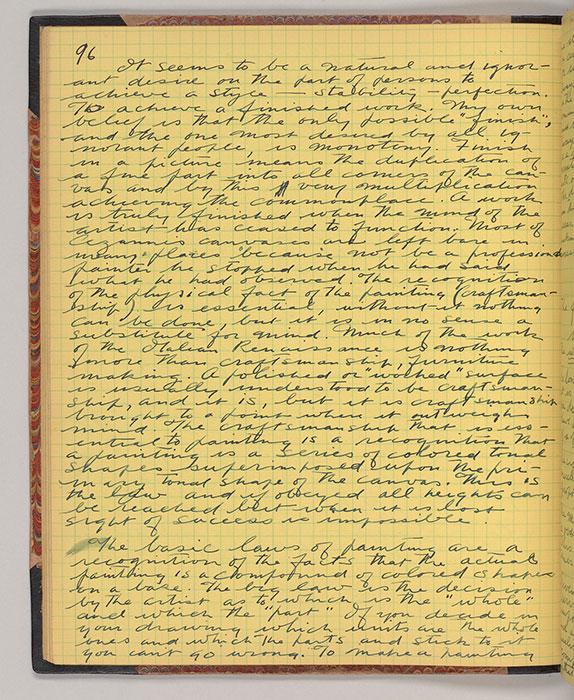 96
It seems to be a natural and ignor-
ant desire on the part of persons to
achieve a style — stability — perfection.
To achieve a finished work. My own
belief is that the only possible "finish",
and the one most desired by all ig-
norant people is monotony. Finish
in a picture means the duplication of
a fine part into all corners of the can-
vas and by this very multiplication
achieving the commonplace. A work
is truly finished when the mind of the
artist has ceased to function. Most of
Cezannes canvases are left bare in
many places because not be a professional
painter he stopped when he had said
what he had observed. The recognition
of the physical fact of the painting (craftsman-
ship) is essential without it nothing
can be done, but it is in no sense a
substitute for mind. Much of the work
of the Italian Renaissance is nothing
more than craftsmanship, furniture
making. A polished or "worked" surface
is usually understood to be craftsman-
ship, and it is, but it is craftsmanship
brought to a point when it outweighs
mind. The craftsmanship that is ess-
ential to painting is a recognition that
a painting is a series of colored tonal
shapes superimposed upon the pri-
mary tonal shape of the canvas. This is
the law and if obeyed all heights can
be reached but when it is lost
sight of success is impossible.
The basic laws of painting are a
recognition of the facts that the actual
painting is a compound of colored shapes
on a base. The big law is the decision
by the artist as to which is the "whole"
and which the "part". If you decide in
your drawing which units are the whole
ones and which the parts and stick to it
you cant go wrong. To make a painting